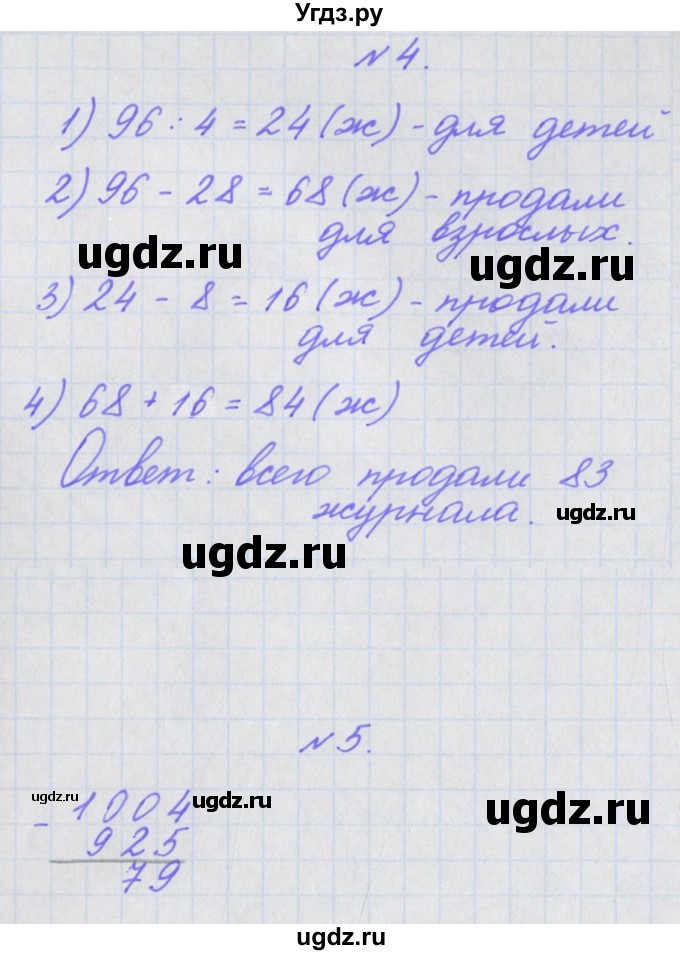 Угдз.ру
№ 4.
1) 96 : 4 = 24 (ж) - для детей
2) 96 - 28 = 68 (ж) - продали
для взрослых.
ugdz.ru ugdz.ru
3) 24 - 8 = 16 (ж) - продали
для детей.
ugdz.ru
4) 68 + 16 = 84 (ж)
Ответ: всего продали 83
журнала. ugdz.ru
ugdz.ru
№ 5.
ugdz.ru ugdz.ru ugdz.ru
- 1004
925
79
ugdz.ru